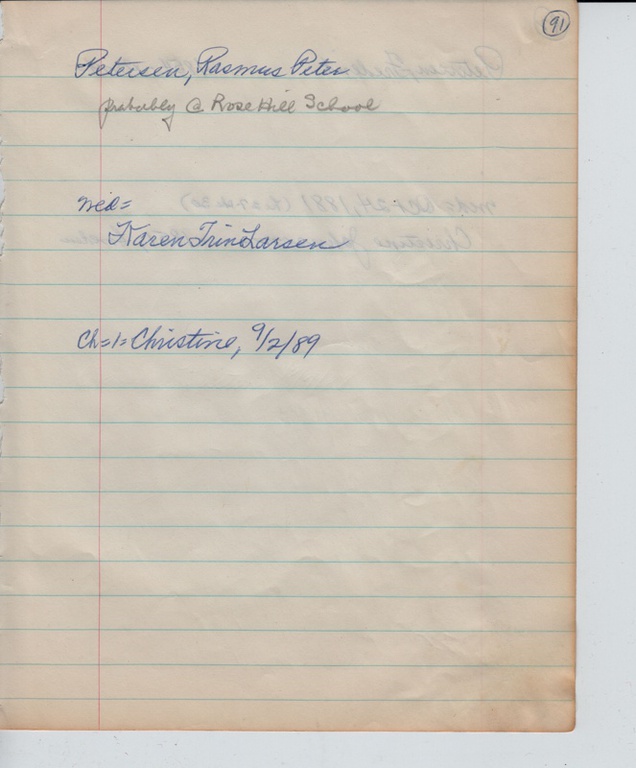 91
Petersen, Rasmus Peter
probably @ Rose Hill School
md=
Karen Trine Larsen
Ch=1= Christine, 9/2/89